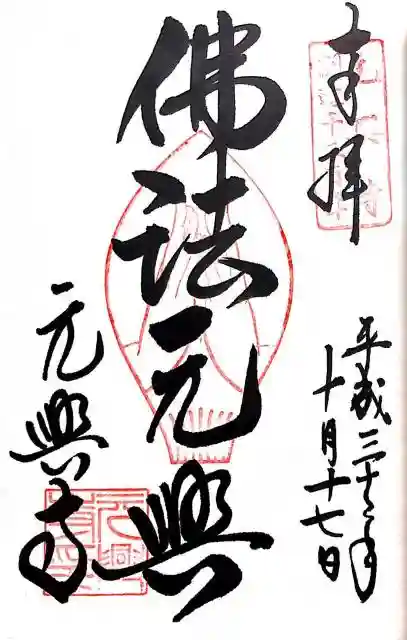 奉拝
平成三十年
十月十七日
佛法元興
元興寺